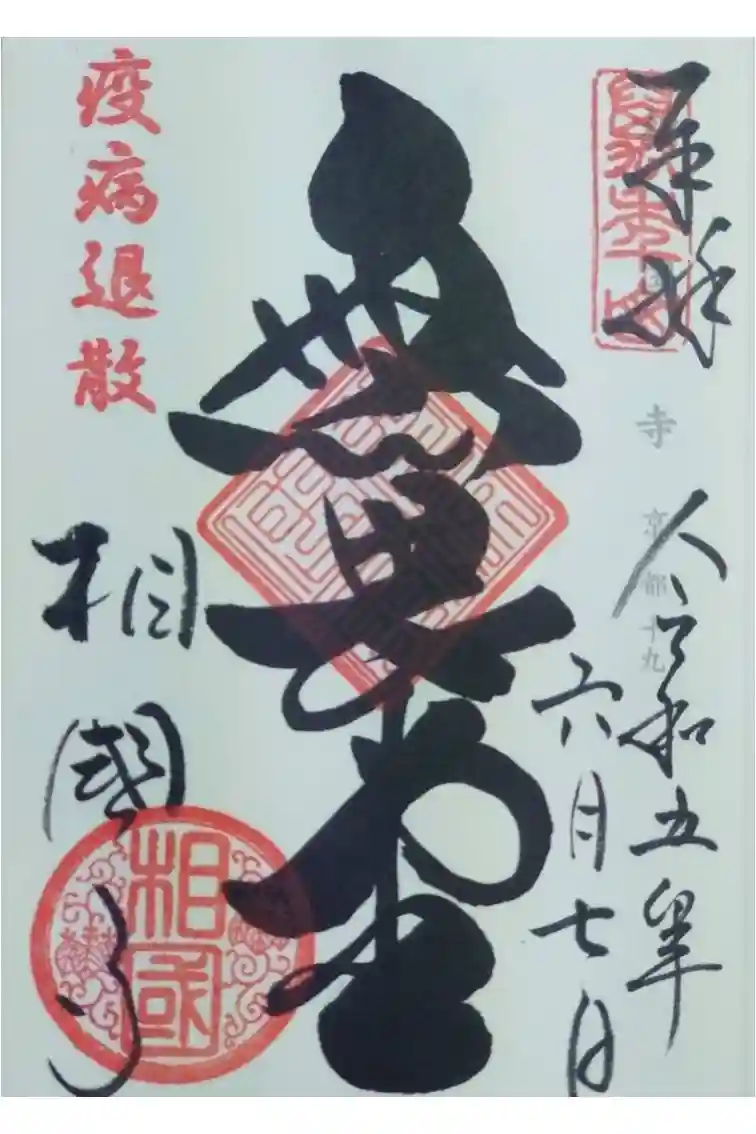 奉拝
寺 京都十九
令和五年
六月七日
無畏堂
疫病退散
相國寺
相國